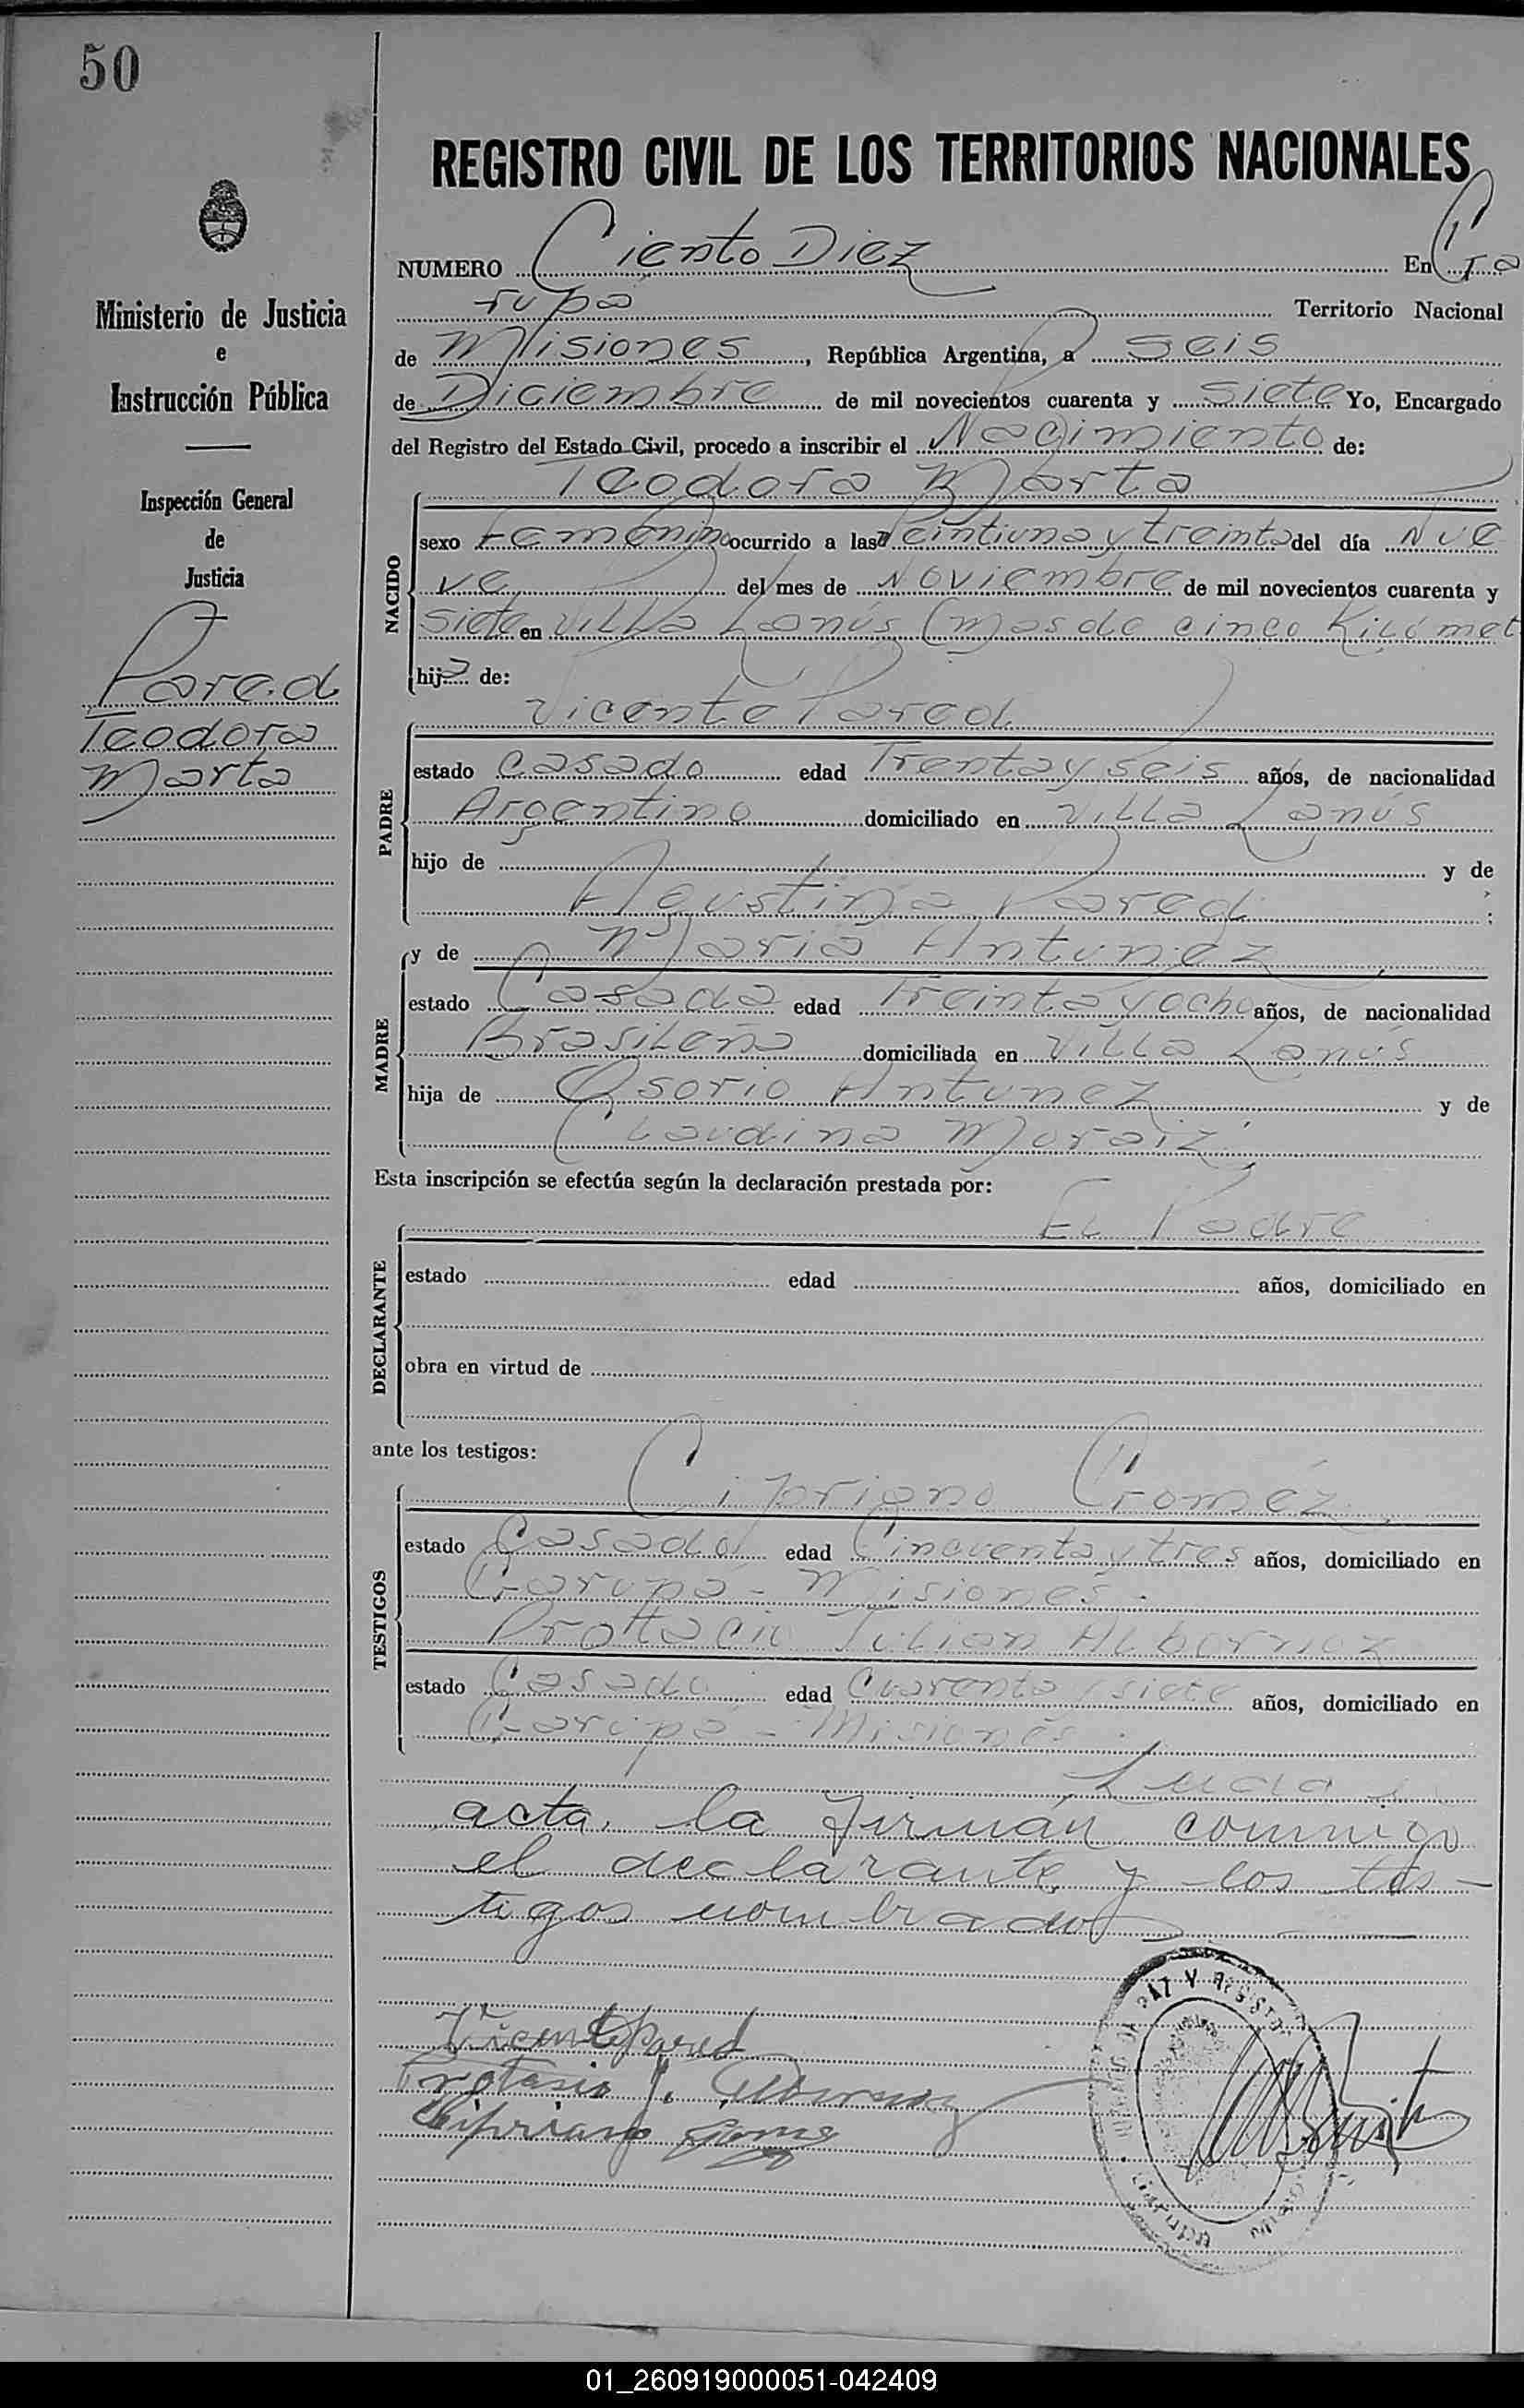 50
REGISTRO CIVIL DE LOS TERRITORIOS NACIONALES
NUMERO Ciento Diez En Ga
rupá Territorio Nacional
de Misiones, República Argentina, a seis
de Diciembre de mil novecientos cuarenta y siete Yo, Encargado
del Registro del Estado Civil, procedo a inscribir el Nacimiento de:
Teodora Marta
NACIDO
sexo Femenino ocurrido a las Veintiuna y treinta del día Nue
ve del mes de Noviembre de mil novecientos cuarenta y
siete en Villa Lanús (Mas de cinco Kilómet
hija de:
Vicente Pared
PADRE
estado Casado edad Trenta y seis años, de nacionalidad
Argentino domiciliado en Villa Lanús
hijo de y de
Agustina Pared
MADRE
y de Maria Antunez
estado Casada edad Treinta y ocho años, de nacionalidad
Brasileña domiciliada en Villa Lanús
hija de Osorio Antunez y de
Claudina Moraiz
Esta inscripción se efectúa según la declaración prestada por:
El Padre
DECLARANTE
estado edad años, domiciliado en
obra en virtud de
ante los testigos:
Cipriano Goméz
TESTIGOS
estado Casado edad Cincuenta y tres años, domiciliado en
Garupá - Misiones.
Julian Albornoz
estado Casado edad Cuarenta y siete años, domiciliado en
Garupá - Misiones.
Leida el
acta, la firmán conmigo
el declarante y los tes-
tigos nombrados
Vicente Pared
Protasio J. Albornoz
Cipriano Gomez
PAZ Y REGISTRO
Ministerio de Justicia
e
Instrucción Pública
Inspección General
de
Justicia
Pared
Teodora
Marta
01_260919000051-042409